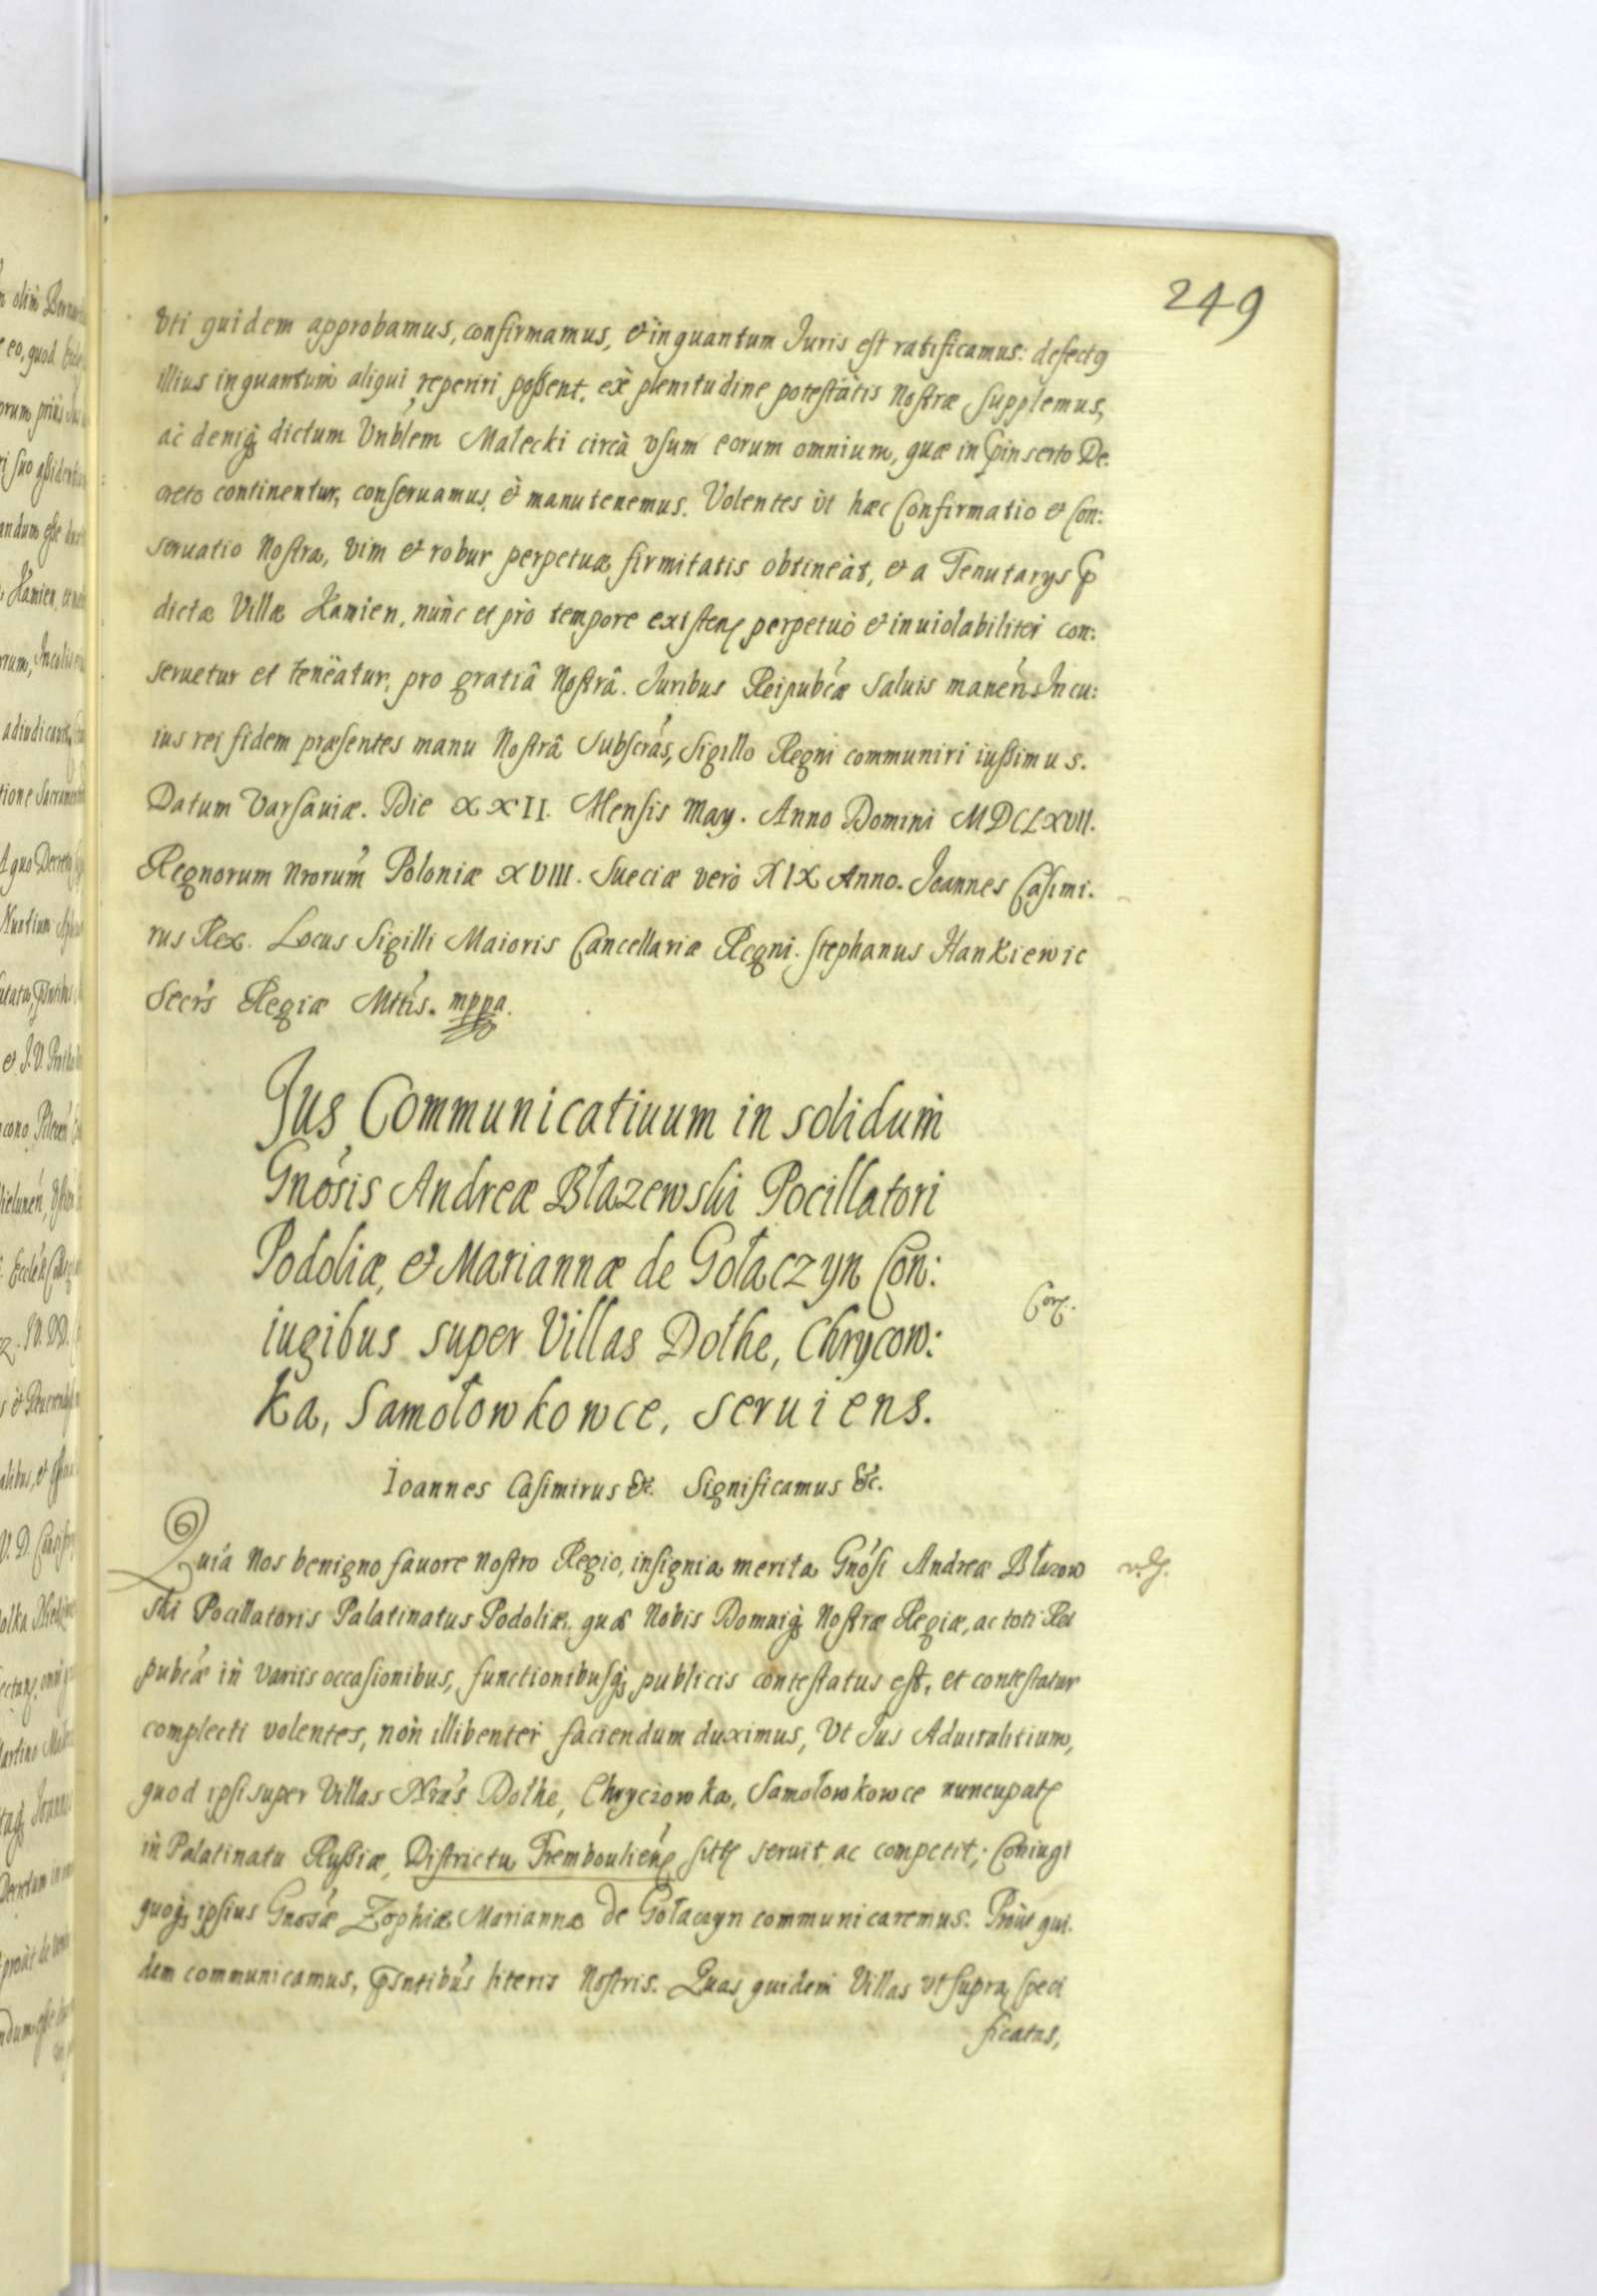 249
Vti quidem approbamus, confirmamus, & in quantum Juris est ratificamus: defectus
illius in quantum aliqui reperiri possent, ex plenitudine potestatis Nostræ Supplemus,
ac deniq dictum Vnblem Małecki circa vsum eorum omnium, quæ in præinserto De:
creto continentur, conseruamus, & manutenemus. Volentes ut hæc Confirmatio & Con:
seruatio Nostra, vim et robur perpetuæ firmitatis obtineat, & a Tenutarys præ
dictæ Villæ Kamien, nunc et pro tempore existen perpetuo & inuiolabiliter con:
seruetur et teneatur, pro gratiâ Nostrâ. Juribus Reipubcæ Saluis manen. In cu:
ius rei fidem præsentes manu Nostrâ Subscras, Sigillo Regni communiri iussimus.
Datum Varsauiæ. Die XXII. Mensis May. Anno Domini MDCLXVII.
Regnorum Nrorum Poloniæ XVIII. Sueciæ verò XIX Anno. Joannes Casimi:
rus Rex. Locus Sigilli Maioris Cancellariæ Regni. Stephanus Hankiewic
Secrs Regiæ Mttis. mppa.
Jus Communicatiuum in solidum
Gnosis Andreæ Błazewski Pocillatori
Podoliæ, & Mariannæ de Gołaczyn Con:
iugibus super Villas Dołhe, Chrycow:
ka, Samołowkowce, seruiens.
Ioannes Casimirus &c. Significamus &c.
Quia Nos benigno fauore nostro Regio, insignia merita Gnosi Andreæ Błazow
ski Pocillatoris Palatinatus Podoliæ. quæ Nobis Domuiq Nostræ Regiæ, ac toti Rei
pubcæ in variis occasionibus, functionibusq publicis contestatus est, et contestatur
complecti volentes, non illibenter faciendum duximus, Vt Jus Aduitalitium,
quod ipsi super Villas Nras Dołhe, Chryczowka, Samołowkowce nuncupat
in Palatinatu Russiæ, Districtu Tremboulien sitt seruit ac competit, Coniugi
quoq ipsius Gnosæ Zophiæ Mariannæ de Gołaczyn communicaremus. Prout qui:
dem communicamus, præsntibus literis Nostris. Quas quidem Villas vt supra speci
ficatas,